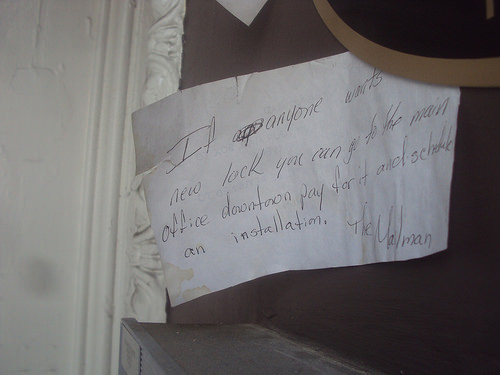 If anyone wants
new lock you can go to the main
office downtown pay for it and schedule
an installation. The Mailman